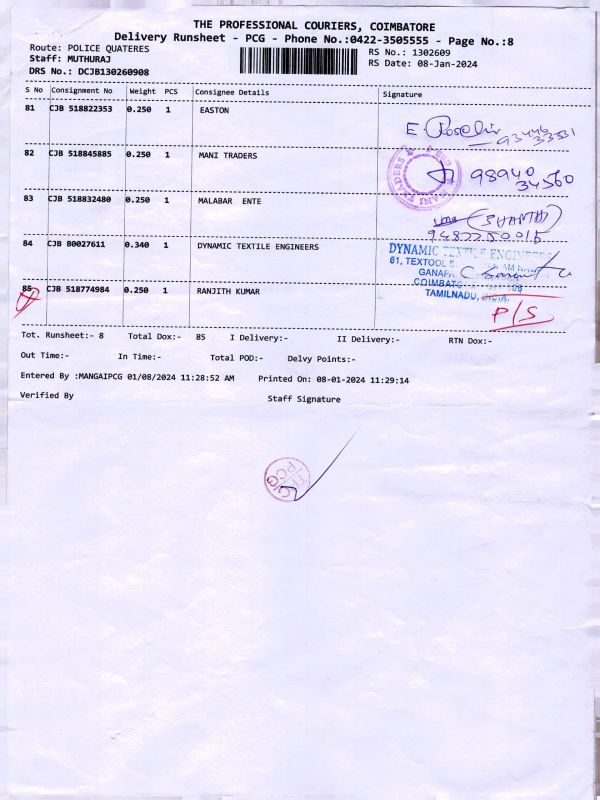 THE PROFESSIONAL COURIERS, COIMBATORE
Delivery Runsheet - PCG - Phone No.:0422-3505555 - Page No.:8
Route: POLICE QUATERES
RS No.: 1302609
Staff: MUTHURAJ
RS Date: 08-Jan-2024
DRS No.: DCJB130260908
S No Consignment No Weight PCS Consignee Details Signature
81 CJB 518822353 0.250 1 EASTON
82 CJB 518845885 0.250 1 MANI TRADERS
98940
34560
83 CJB 518832480 0.250 1 MALABAR ENTE
(SHANTHI)
9482250015
84 CJB 80027611 0.340 1 DYNAMIC TEXTILE ENGINEERS
DYNAMIC TEXTILE ENGINEERS
61, TEXTOOL
GANAPA
COIMBAT
TAMILNADU, INDIA.
85 CJB 518774984 0.250 1 RANJITH KUMAR
P/S
Tot. Runsheet:- 8 Total Dox:- 85 I Delivery:- II Delivery:- RTN Dox:-
Out Time:- In Time:- Total POD:- Delvy Points:-
Entered By :MANGAIPCG 01/08/2024 11:28:52 AM Printed On: 08-01-2024 11:29:14
Verified By Staff Signature